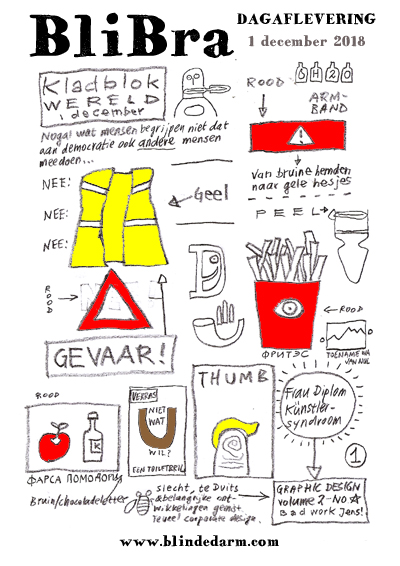 BliBra
DAGAFLEVERING
1 december 2018
Kladblok
WERELD
1 december
Nogal wat mensen begrijpen niet dat
aan democratie ook andere mensen
meedoen...
ROOD
SH2O
ARM-
BAND
Van bruine hemden
naar gele hesjes
NEE:
NEE:
NEE:
Geel
PEEL
ROOD
GEVAAR!
ROOD
ФРИТЭС
TOENAME NA
ROOD
K
ФАРСА ПОМОДОРЫ
Bruin/chocoladeletter
VERRAS
NIET
WAT
U
WIL?
EEN TOILETBRIL
THUMB
Frau Diplom
Künstler-
syndroom
1
slecht, te Duits
&belangrijke ont-
wikkelingen gemist.
Teveel corporate design.
GRAPHIC DESIGN
volume 2-NO
Bad work Jens!
www.blindedarm.com